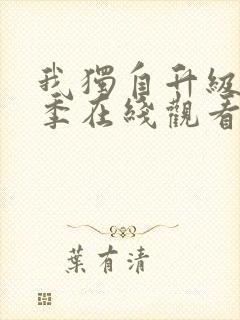 我獨自升級
季在綫觀看
葉有清